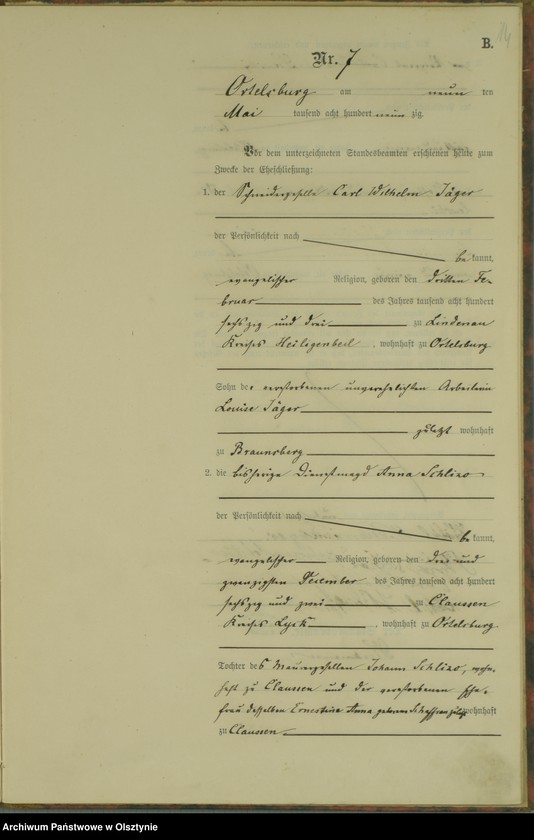 B.
Nr. 7
Ortelsburg am neun ten
Mai tausend acht hundert neun zig.
Vor dem unterzeichneten Standesbeamten erschienen heute zum
Zwecke der Eheschließung:
1. der Schneidergeselle Carl Wilhelm Jäger
der Persönlichkeit nach
be kannt,
evangelischer Religion, geboren den dritten Fe-
bruar des Jahres tausend acht hundert
sechszig und drei zu Lindenau
Kreises Heiligenbeil, wohnhaft zu Ortelsburg
Sohn der verstorbenen unverehelichten Arbeiterin
Louise Jäger
zuletzt wohnhaft
zu Braunsberg
2. die bisherige Dienstmagd Anna
der Persönlichkeit nach
be kannt,
evangelischer Religion, geboren den drei und
zwanzigsten December des Jahres tausend acht hundert
sechszig und zwei zu Claussen
Kreises Lyck, wohnhaft zu Ortelsburg
Tochter des Maurergesellen Johann wohn-
haft zu Claussen und der verstorbenen Ehe-
frau desselben Ernestine Anna geborene zuletzt wohnhaft
zu Claussen
Archiwum Państwowe w Olsztynie